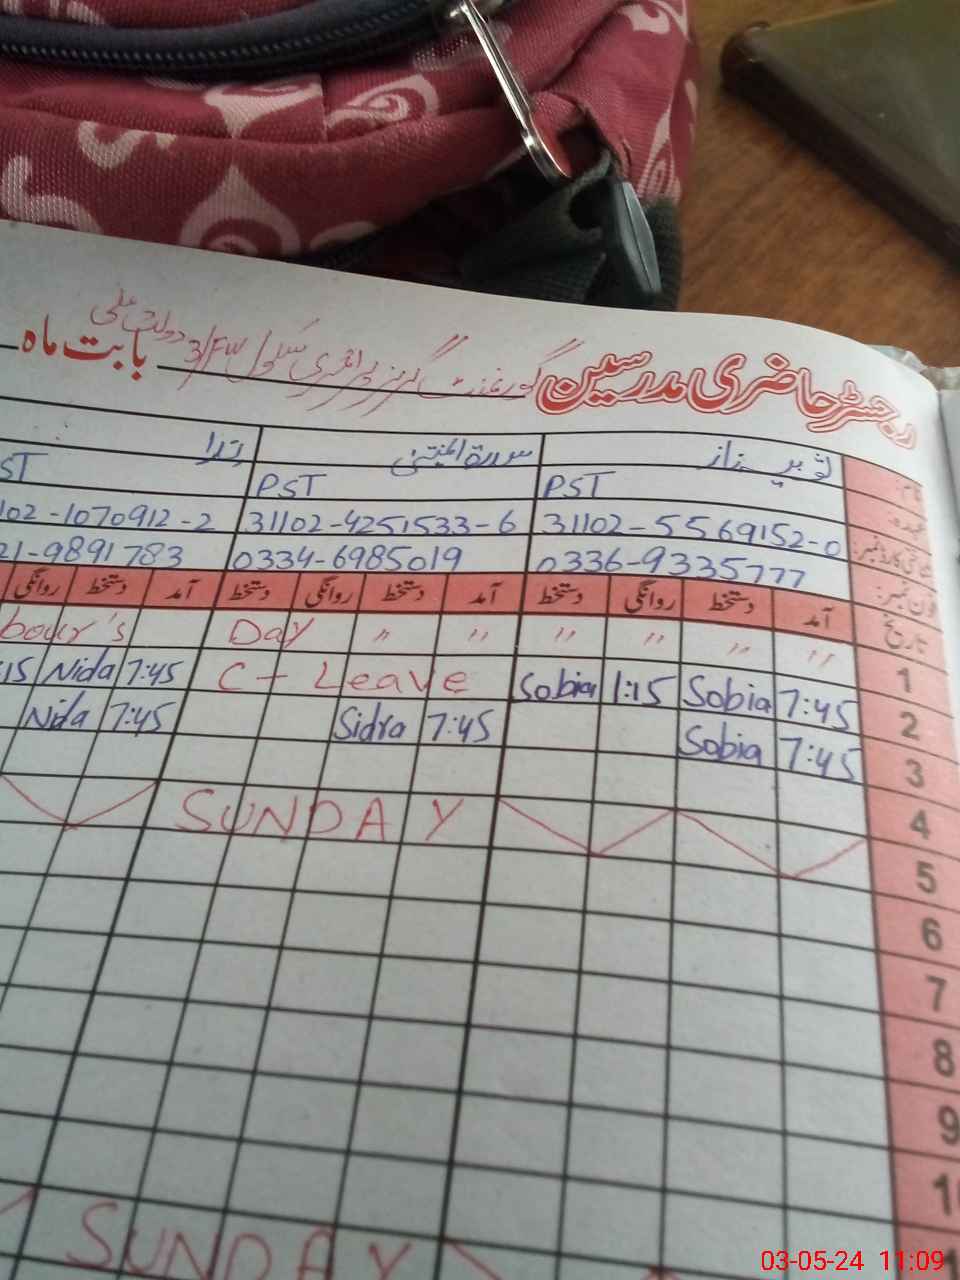 رجسٹر حاضری مدرسین گورنمنٹ گرلز پرائمری سکول 3/FW بابت ماہ
PST PST ST
31102-5569152-0 31102-4251533-6 102-1070912-2
فون نمبر: 0336-9335777 0334-6985019 21-9891783
تاریخ آمد دستخط روانگی دستخط آمد دستخط روانگی دستخط آمد دستخط روانگی
1 bour's Day " " " " " "
2 :15 Nida 7:45 C - Leave Sobia 1:15 Sobia 7:45
3 Nida 7:45 Sidra 7:45 Sobia 7:45
4
5 SUNDAY
6
7
8
9
SUNDAY
03-05-24 11:09